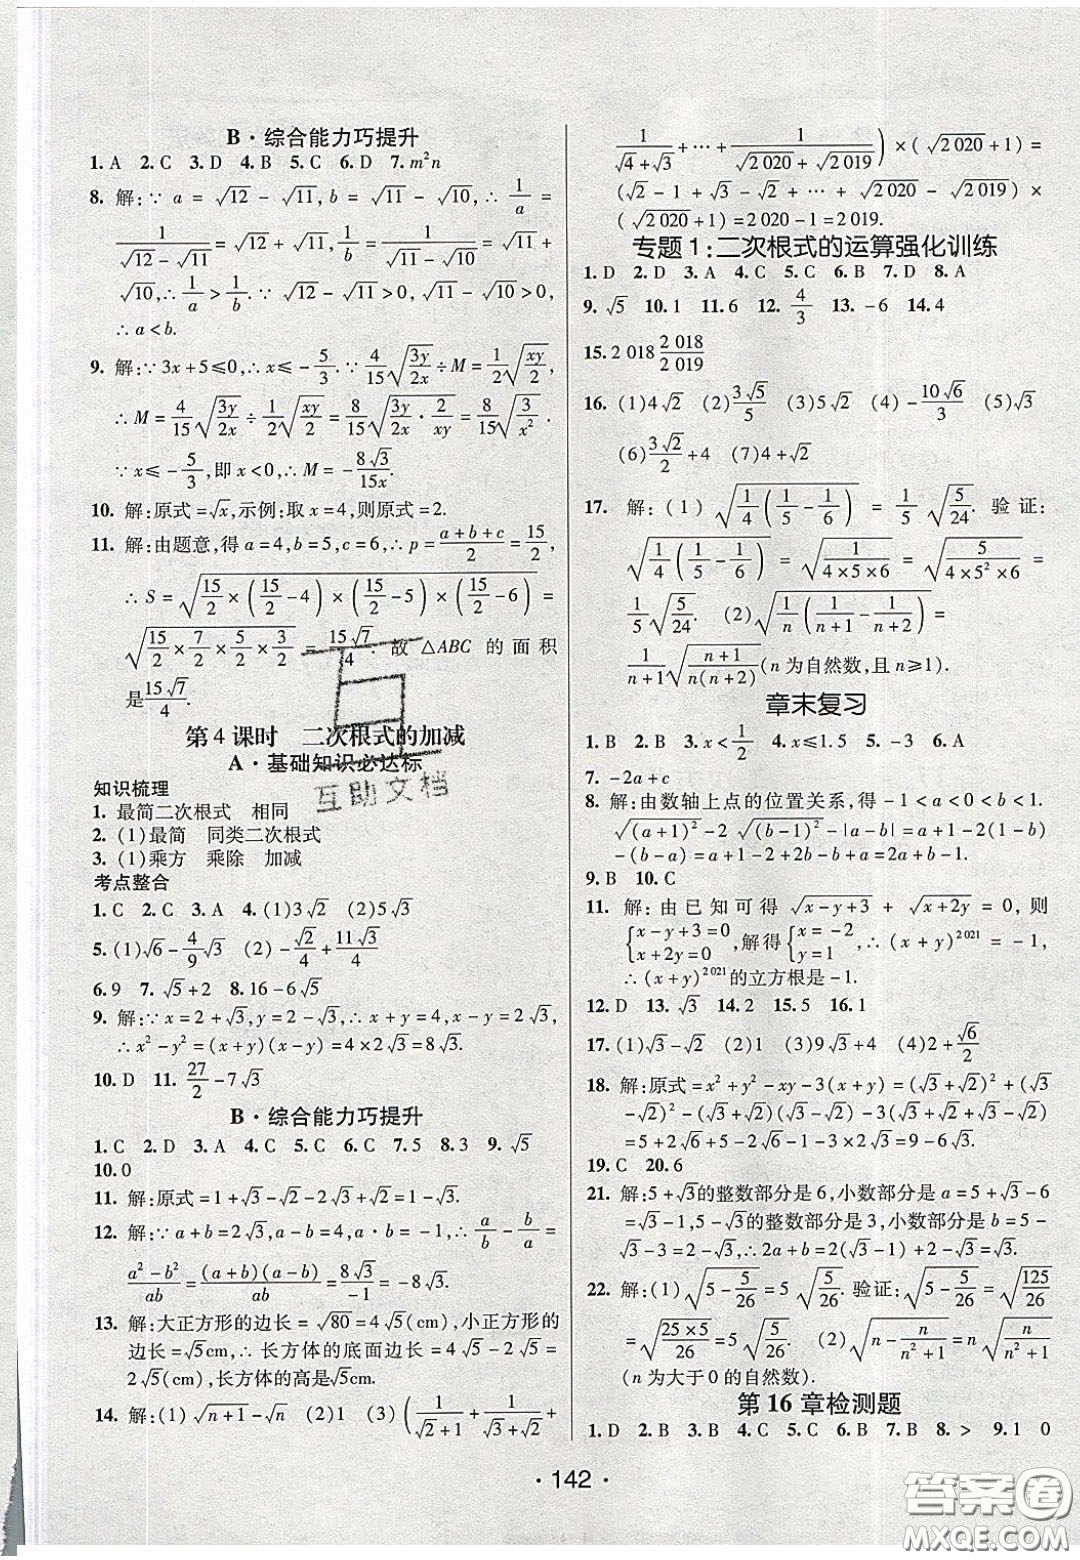 B·综合能力巧提升
1. A 2. C 3. D 4. B 5. C 6. D 7. m²n
8. 解:∵ a = √12 - √11, b = √11 - √10, ∴ 1/a =
1/(√12 - √11) = √12 + √11, 1/b = 1/(√11 - √10) = √11 +
√10, ∴ 1/a > 1/b. ∵ √12 - √11 > 0, √11 - √10 > 0,
∴ a < b.
9. 解:∵ 3x+5≤0, ∴ x≤ -5/3. ∵ 4/15 √(3y/2x) ÷ M = 1/2 √(xy/2),
∴ M = 4/15 √(3y/2x) ÷ 1/2 √(xy/2) = 8/15 √(3y/2x · 2/xy) = 8/15 √(3/x²).
∵ x≤ -5/3, 即 x<0, ∴ M = -8√3/15x.
10. 解:原式=√x, 示例:取 x=4, 则原式=2.
11. 解:由题意,得 a=4, b=5, c=6, ∴ p = (a+b+c)/2 = 15/2,
∴ S = √(15/2 × (15/2 - 4) × (15/2 - 5) × (15/2 - 6)) =
√(15/2 × 7/2 × 5/2 × 3/2) = 15√7/4. 故 △ABC 的面积
是 15√7/4.
第 4 课时 二次根式的加减
A·基础知识必达标
互助文档
知识梳理
1. 最简二次根式 相同
2. (1)最简 同类二次根式
3. (1)乘方 乘除 加减
考点整合
1. C 2. C 3. A 4. (1)3√2 (2)5√3
5. (1)√6 - 4/9 √3 (2) -√2/4 + 11√3/4
6. 9 7. √5+2 8. 16-6√5
9. 解:∵ x=2+√3, y=2-√3, ∴ x+y=4, x-y=2√3,
∴ x²-y²=(x+y)(x-y)=4×2√3=8√3.
10. D 11. 27/2 - 7√3
B·综合能力巧提升
1. C 2. D 3. A 4. C 5. C 6. C 7. 5 8. 3 9. √5
10. 0
11. 解:原式=1+√3-√2-2√3+√2=1-√3.
12. 解:∵ a+b=2√3, a-b=4, a·b=-1, ∴ a/b - b/a =
(a²-b²)/ab = (a+b)(a-b)/ab = 8√3/-1 = -8√3.
13. 解:大正方形的边长=√80=4√5(cm), 小正方形的
边长=√5(cm), ∴ 长方体的底面边长=4√5-2√5=
2√5(cm), 长方体的高是√5cm.
14. 解:(1) √(n+1) - √n (2)1 (3) (1/(√2+1) + 1/(√3+√2) +
1/(√4+√3) + ⋯ + 1/(√2 020 + √2 019)) × (√2 020 + 1) =
(√2 - 1 + √3 - √2 + ⋯ + √2 020 - √2 019) ×
(√2 020+1)=2 020-1=2 019.
专题 1:二次根式的运算强化训练
1. D 2. D 3. A 4. C 5. C 6. B 7. D 8. A
9. √5 10. 1 11. 6 12. 4/3 13. -6 14. 4
15. 2 018 2 018/2 019
16. (1)4√2 (2)3√5/5 (3)5√2 (4)-10√6/3 (5)√3
(6)3√2/2+4 (7)4+√2
17. 解:(1) √(1/4 (1/5 - 1/6)) = 1/5 √(5/24). 验证:
√(1/4 (1/5 - 1/6)) = √(1/(4×5×6)) = √(5/(4×5²×6)) =
1/5 √(5/24). (2) √(1/n (1/(n+1) - 1/(n+2))) =
1/(n+1) √((n+1)/(n(n+2))) (n 为自然数,且 n≥1).
章末复习
1. B 2. B 3. x<1/2 4. x≤1.5 5. -3 6. A
7. -2a+c
8. 解:由数轴上点的位置关系,得 -1<a<0<b<1.
√(a+1)² - 2√(b-1)² - |a-b| = a+1-2(1-b)
-(b-a)=a+1-2+2b-b+a=2a+b-1.
9. B 10. C
11. 解:由已知可得 √(x-y+3) + √(x+2y) = 0, 则
{x-y+3=0 x+2y=0, 解得 {x=-2 y=1, ∴ (x+y)²⁰²¹ = -1,
∴ (x+y)²⁰²¹的立方根是-1.
12. D 13. √3 14. 2 15. 5 16. 1
17. (1)√3-√2 (2)1 (3)9√3 (4)2+√6/2
18. 解:原式=x²+y²-xy-3(x+y)=(√3+√2)²+(√3
-√2)²-(√3+√2)(√3-√2)-3(√3+√2+√3-√2)
=5+2√6+5-2√6-1-6√3=9-6√3.
19. C 20. 6
21. 解:5+√3的整数部分是 6, 小数部分是 a=5+√3-6
=√3-1, 5-√3的整数部分是 3, 小数部分是 b=5-
√3-3=2-√3, ∴ 2a+b=2(√3-1)+2-√3=√3.
22. 解:(1) √(5 - 5/26) = 5√(5/26) 验证: √(5 - 5/26) = √(125/26)
=√(25×5/26) = 5√(5/26). (2) √(n - n/(n²+1)) = n√(n/(n²+1))
(n 为大于 0 的自然数).
第 16 章检测题
1. D 2. B 3. D 4. C 5. A 6. B 7. B 8. > 9. 1 0
·142·
答案圈
MXQE.COM